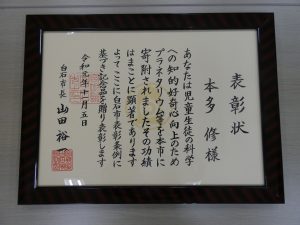 表彰状
本多 修 様
あなたは児童生徒の科学
への知的好奇心向上のため
プラネタリウム等を本市に
寄附されましたその功績
はまことに顕著であります
よってここに白石市表彰条例に
基づき記念品を贈り表彰します
令和元年十一月五日
白石市長 山田裕一